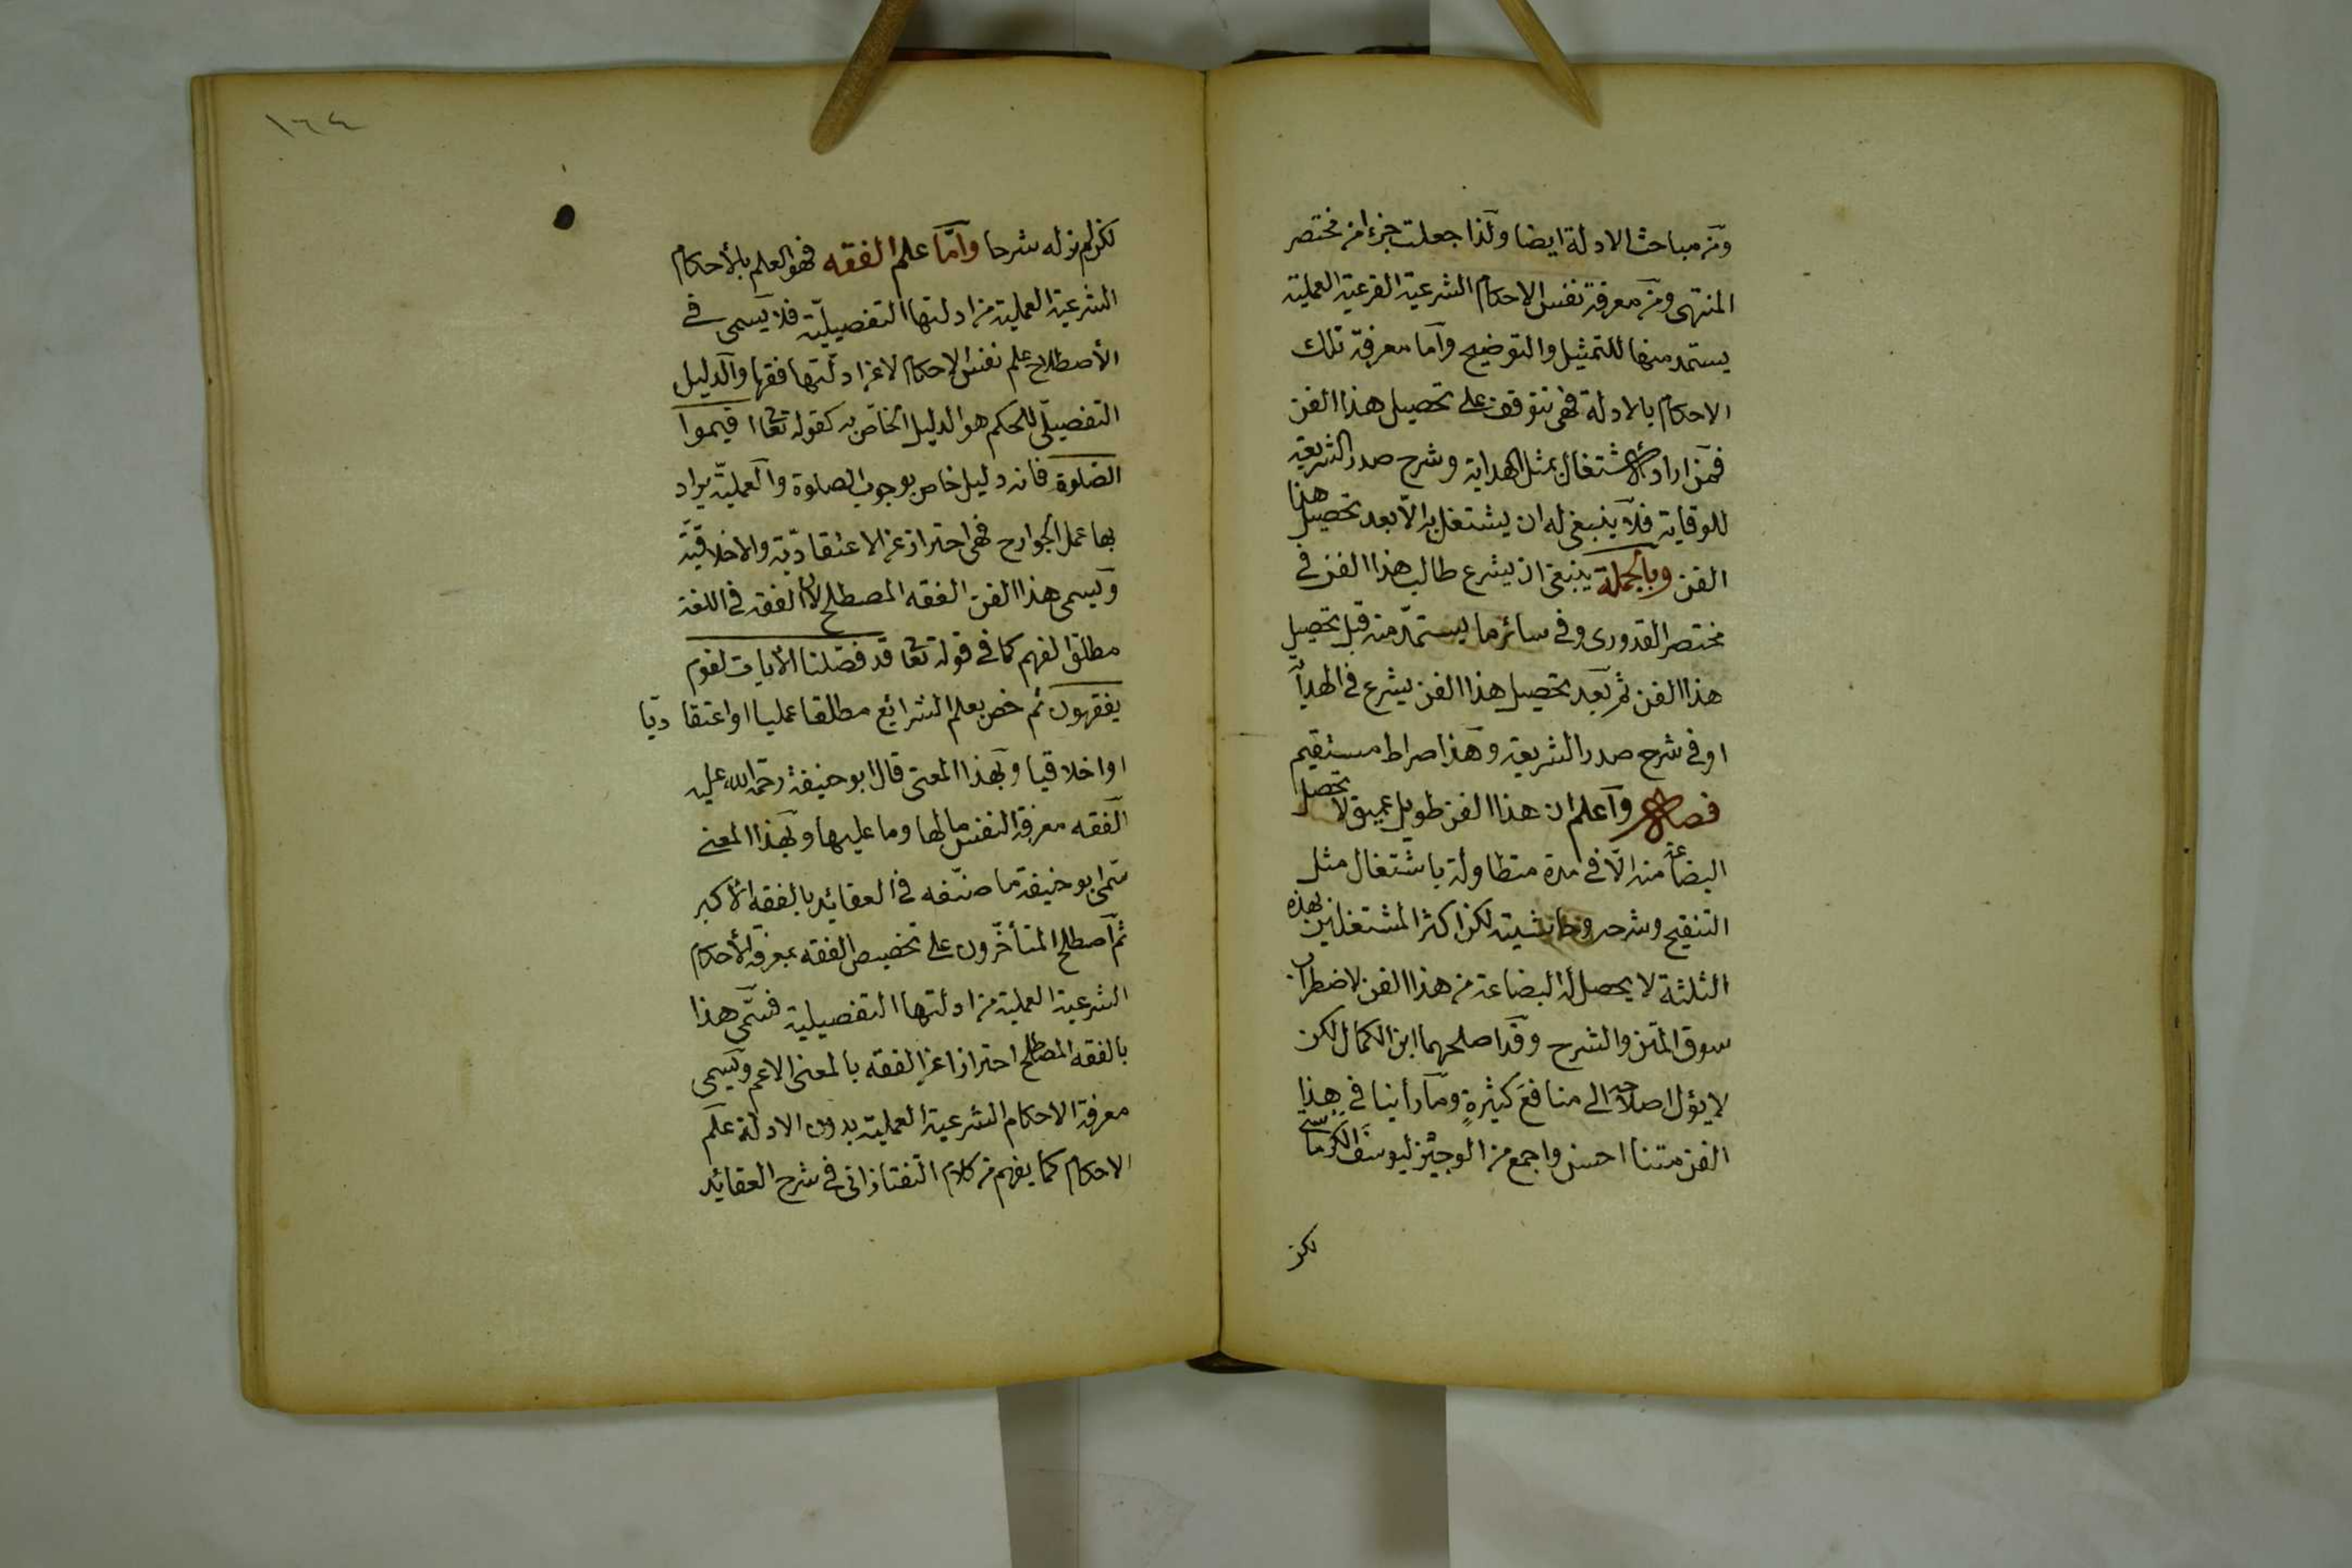 ومن مباحث الادلة ايضا ولذا جعلت جزءا من مختصر
المنتهى ومن معرفة نفس الاحكام الشرعية الفرعية العملية
يستمد منها للتمثيل والتوضيح واما معرفة تلك
الاحكام بالادلة فهى تتوقف على تحصيل هذا الفن
فمن اراد الاشتغال بمثل الهداية وشرح صدر الشريعة
للوقاية فلا ينبغى له ان يشتغل به الا بعد تحصيل هذا
الفن وبالجملة ينبغى ان يشرع طالب هذا الفن فى
مختصر القدورى وفى سائر ما يستمد منه قبل تحصيل
هذا الفن ثم بعد تحصيل هذا الفن يشرع فى الهداية
او فى شرح صدر الشريعة وهذا صراط مستقيم
فصل واعلم ان هذا الفن طويل عميق لا تحصل
البضاعة منه الّا فى مدة متطاولة باشتغال مثل
التنقيح وشرحه وحاشيته لكن اكثر المشتغلين بهذه
الثلثة لا يحصل له البضاعة من هذا الفن لاضطراب
سوق المتن والشرح وقد اصلحهما ابن الكمال لكن
لا يؤل اصلاحه الى منافع كثيرةٍ وما رأينا فى هذا
الفن متنا احسن واجمع من الوجيز ليوسف الكرماستى
لكن
١٦٤
لكن لم نر له شرحا وأمّا علم الفقه فهو العلم بالأحكام
الشرعية العملية من ادلتها التفصيليّة فلا يسمى فى
الأصطلاح علم نفس الاحكام لا عن ادلّتها فقها والدليل
التفصيلّى للحكم هو الدليل الخاصّ به كقوله تعا اقيموا
الصّلوة فانه دليل خاص بوجوب الصلوة والعمليّة يراد
بها عمل الجوارح فهى احتراز عن الاعتقاديّة والاخلاقيّة
ويسمى هذا الفن الفقه المصطلح لان الفقه فى اللغة
مطلق الفهم كما فى قوله تعا قد فصّلنا الأيات لقوم
يفقهون ثم خص بعلم الشرايع مطلقا عمليا او اعتقاديّا
او اخلاقيا وبهذا المعنى قال ابو حنيفة رحمة الله عليه
الفقه معرفة النفس ما لها وما عليها وبهذا المعنى
سمّى ابو حنيفة ما صنّفه فى العقائد بالفقه الأكبر
ثمّ اصطلح المتأخّرون على تخصيص الفقه بمعرفة الأحكام
الشرعية العملية من ادلّتها التفصيلية فسمّى هذا
بالفقه المصطلح احترازا عن الفقه بالمعنى الاعم ويسمى
معرفة الاحكام الشرعية العملية بدون الادلة علم
الاحكام كما يفهم من كلام التفتازانى فى شرح العقائد